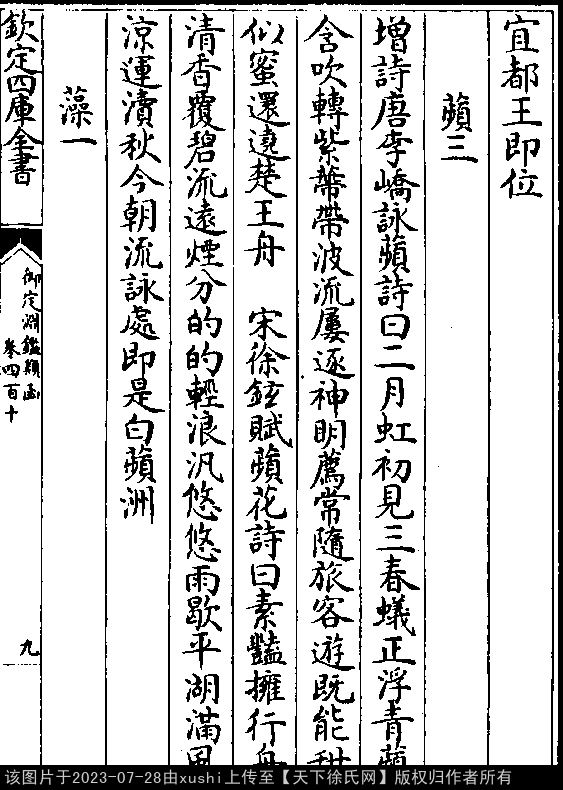 宜都王即位
蘋三
增詩唐李嶠詠蘋詩曰二月虹初見三春蟻正浮青蘋
含吹轉紫蔕帶波流屢逐神明薦常隨旅客遊既能甜
似蜜還遶楚王舟　宋徐鉉賦蘋花詩曰素豔擁行舟
清香覆碧流遠煙分的的輕浪汎悠悠雨歇平湖滿風
涼運瀆秋今朝流詠處即是白蘋洲
藻一
欽定四庫全書
御定淵鑑類函
卷四百十
九
该图片于2023-07-28由xushi上传至【天下徐氏网】版权归作者所有